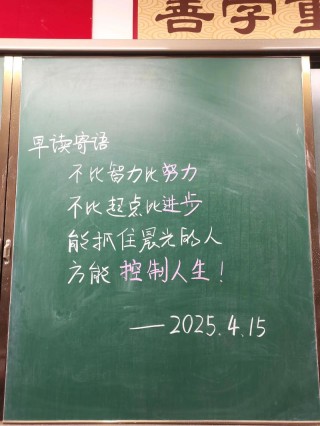 善学重
早读寄语
不比智力比努力
不比起点比进步
能抓住晨光的人
方能控制人生！
——2025.4.15